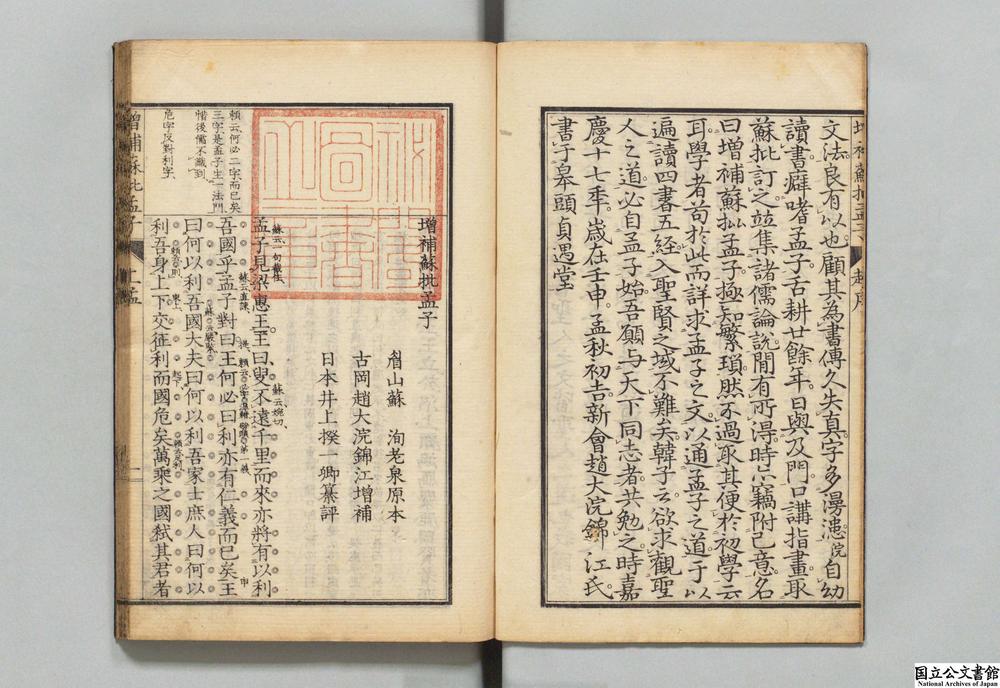 文法良有以也顧其為書傳久失真字多漫漶浣自幼
讀書癖嗜孟子舌耕廿餘年日與及門口講指畫取
蘇批訂之竝集諸儒論說閒有所得時亦竊附己意名
曰增補蘇批孟子極知繁瑣然不過取其便於初學云
耳學者苟於此而詳求孟子之文以通孟子之道于以
遍讀四書五經入聖賢之域不難矣韓子云欲求觀聖
人之道必自孟子始吾願与天下同志者共勉之時嘉
慶十七年歲在壬申孟秋初吉新會趙大浣錦江氏
書于皋頭貞遇堂
增補蘇批孟子
眉山蘇 洵老泉原本
古岡趙大浣錦江增補
日本井上揆一卿纂評
孟子見梁惠王王曰叟不遠千里而來亦將有以利
吾國乎孟子對曰王何必曰利亦有仁義而已矣王
曰何以利吾國大夫曰何以利吾家士庶人曰何以
利吾身上下交征利而國危矣萬乘之國弒其君者
賴云何必二字而已矣
三字是孟子生一法門
惜後儒不識到
危字反對利字
增補蘇批孟子 上孟
国立公文書館
National Archives of Japan